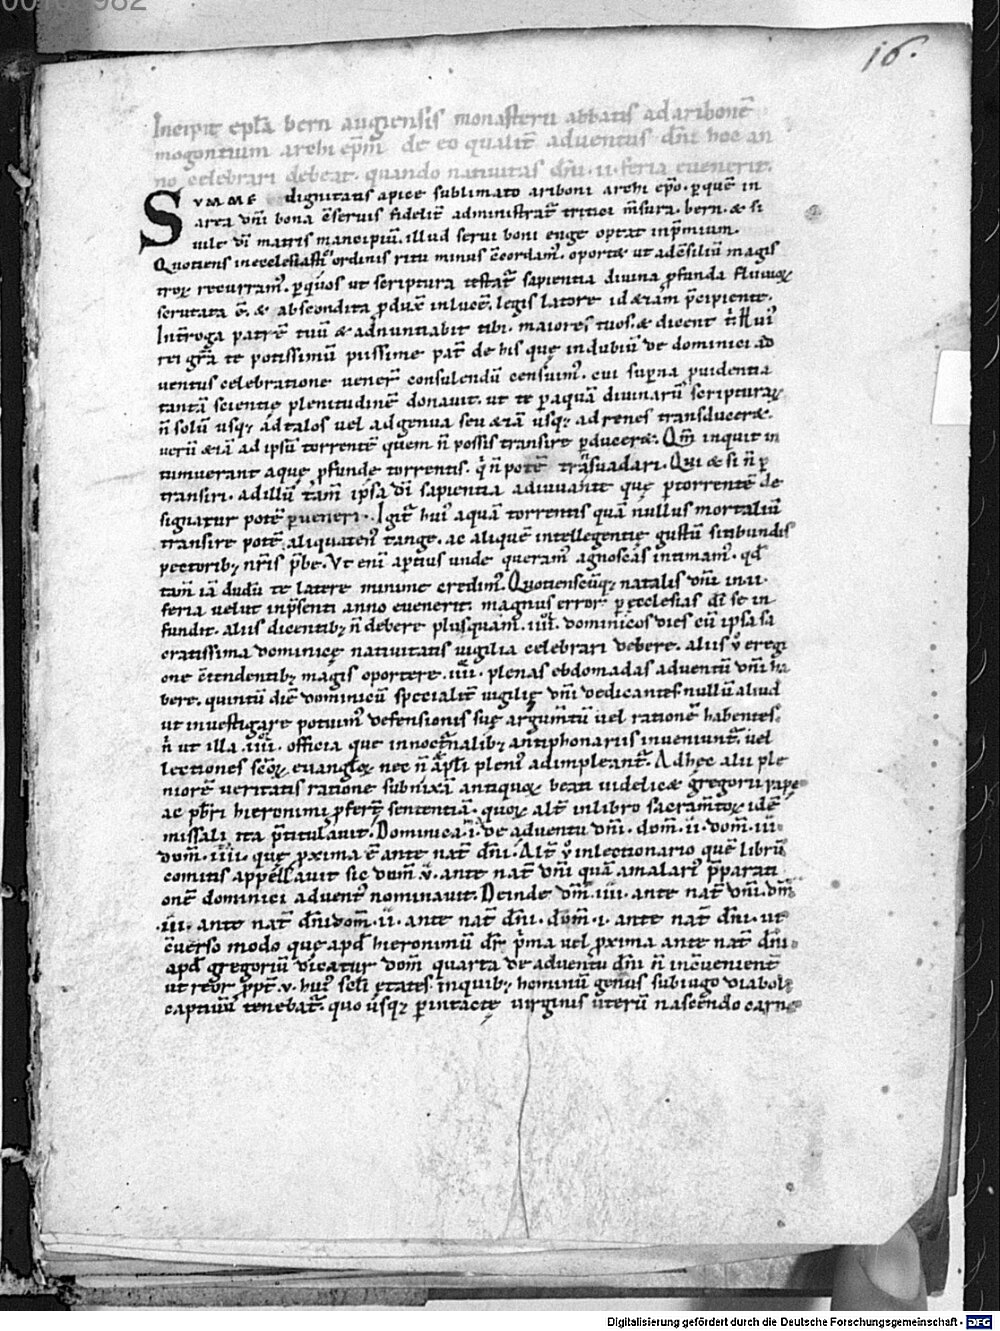 16.
Incipit epła bern augiensis monasterii abbatis ad aribonē
mogontium archi ep̄m de eo qualit̄ adventus dn̄i hoc an
no celebrari debeat. quando nativitas dn̄i .ii. feria evenerit.
SVMME dignitatis apice sublimato ariboni archi ep̄o. ꝑ quē in
arca dn̄i bona c̄servis fidelit̄ administrat̄ tritici m̄sura. bern. & si
vile dī matris mancipiū. illud servi boni euge optat in p̄mium.
Quotiens in ecclesiasti ordinis ritu minus c̄cordam̄. oport& ut ad c̄siliū magis
troꝝ recurram̄. ꝑ quos ut scriptura testat̄ sapientia divina ꝓfunda fluvioꝝ
scrutata ē. & abscondita ꝓduxē in lucē. legis latore id &iam p̄cipiente.
Int̄roga patrē tuū & adnuntiabit tibi. maiores tuos. & dicent t̄
rei gr̄a te potissimū piissime pat̄ de his quę in dubiū de dominici ad
ventus celebratione vener̄ consulendū censuim̄. cui sup̄na ꝓvidentia
tantā scientię plenitudinē donavit. ut te ꝑ aquā divinarū scripturaꝝ
n̄ solū usqꝫ ad talos vel ad genua seu &iā usqꝫ ad renes transducer&.
verū &iā ad ipsū torrentē quem n̄ possis transire ꝑducer&. Qm̄ inquit in
tumuerant aquę ꝓfunde torrentis. q̇ n̄ potē transvadari. Qui & si n̄ ꝑ
transiri. ad illū tam̄ ipsa dī sapientia adiuvante que ꝑ torrentē de
signatur potē ꝑveneri. Igit̄ hui᾽ aquā torrentis quā nullus mortaliū
transire potē aliquaten᾽ tange. ac aliquē intellegentię gustū sitibundis
pectoribꝫ nr̄is p̄be. Ut enī aptius unde queram᾽ agnoscas intimam᾽. qd̄
tam̄ iā dudū te latere minime credim᾽. Quotienscūqꝫ natalis dn̄i in .ii.
feria velut in p̄senti anno evenerit. magnus error ꝑ ęcclesias dī se in
fundit. aliis dicentibꝫ n̄ debere plusquam .iiii. dominicos dies cū ipsa sa
cratissima dominicę nativitatis vigilia celebrari debere. aliis v̊ e regi
one c̄tendentibꝫ magis oportere .iiii. plenas ebdomadas adventū dn̄i ha
bere. quintū diē dominicū specialit̄ vigilię dn̄i dedicantes. nullū aliud
ut investigare potuim᾽ defensionis suę argum̄tū vel rationē habentes.
n̄ ut illa .iiii. officia que in nocturnalibꝫ antiphonariis inveniunt̄. vel
lectiones sc̄oꝝ evangl̄oꝝ nec n̄ apl̄i pleni᾽ adimpleant̄. Ad hęc alii ple
niorē veritatis ratione subnixā antiquoꝝ beati videlic& gregorii papę
ac pb̄ri hieronimi ꝓfert̄ sententiā. quoꝝ alt̄ in libro sacram̄toꝝ idē
missali ita p̄titulavit. Dominica .i. de adventu dn̄i. dom̄ .ii. dom̄ .iii.
dom̄ .iiii. quę ꝓxima ē ante nat̄ dn̄i. Alt̄ v̊ in lectionario quē librū
comitis appellavit sic dom̄ .v. ante nat̄ dn̄i quā amalari᾽ p̄parati
onē dominici advent᾽ nominavit. Deinde dom̄ .iiii. ante nat̄ dn̄i. dom̄
.iii. ante nat̄ dn̄i. dom̄ .ii. ante nat̄ dn̄i. dom̄ .i. ante nat̄ dn̄i. ut
c̄verso modo que apd̄ hieronimū dr̄ p̄ma vel ꝓxima ante nat̄ dn̄i.
apd̄ gregoriū dicatur dom̄ quarta de adventu dn̄i n̄ inc̄venient̄
ut reor ꝓpt̄ .v. hui᾽ scl̄i etates. in quibꝫ hominū genus sub iugo diaboli
captivū tenebat̄. quo usqꝫ ꝑ intactę virginis uterū nascendo carne
Digitalisierung gefördert durch die Deutsche Forschungsgemeinschaft - DFG